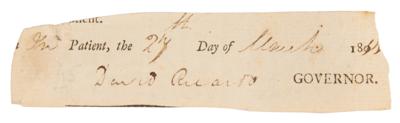 In Patient, the 27th Day of March 18
David Ricardo GOVERNOR.